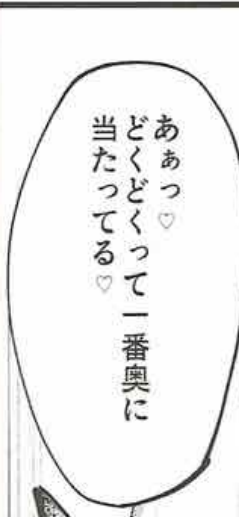 あぁっ♡
どくどくって一番奥に
当たってる♡